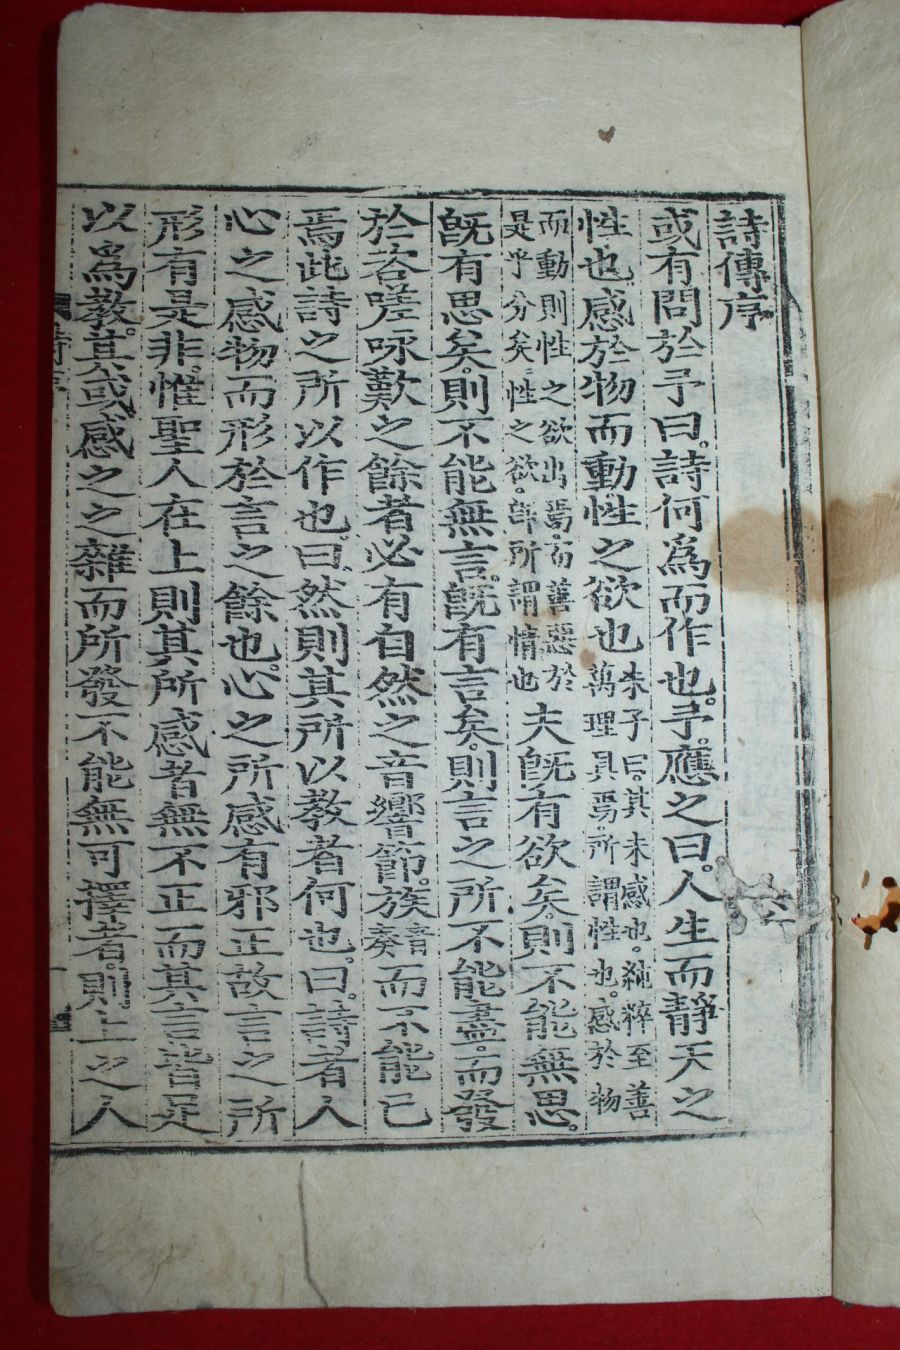 詩傳序
或有問於予曰。詩何爲而作也。予應之曰。人生而靜天之
性也。感於物而動。性之欲也朱子曰。其未感也。純粹至善萬理具焉。所謂性也。感於物
而動則性之欲出焉。而善惡於是乎分矣。性之欲。卽所謂情也夫旣有欲矣。則不能無思。
旣有思矣。則不能無言。旣有言矣。則言之所不能盡。而發
於咨嗟咏歎之餘者必有自然之音響節族。音奏而不能已
焉此詩之所以作也。曰。然則其所以教者何也。曰。詩者人
心之感物而形於言之餘也。心之所感有邪正故言之所
形有是非。惟聖人在上則其所感者無不正而其言皆足
以爲教。其或感之之雜而所發不能無可擇者。則上之人